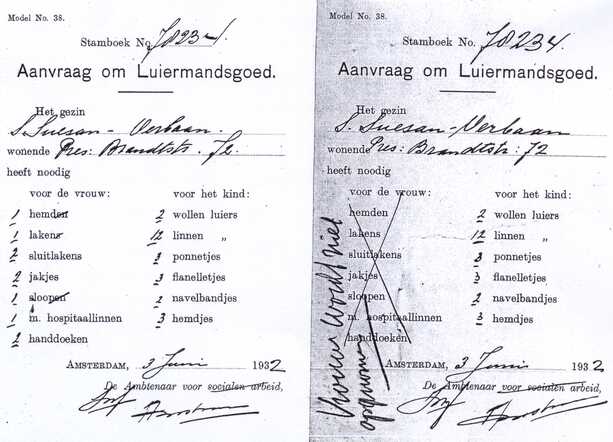 Model No. 38.
Stamboek No. 78234
Aanvraag om Luiermandsgoed.
Het gezin
S. Suesan-Verbaan.
wonende Pres: Brandtstr. 72
heeft noodig
voor de vrouw: voor het kind:
1 hemden 2 wollen luiers
1 lakens 12 linnen „
2 sluitlakens 3 ponnetjes
2 jakjes 3 flanelletjes
1 sloopen 2 navelbandjes
1 m. hospitaallinnen 3 hemdjes
2 handdoeken
Amsterdam, 3 Juni 1932
De Ambtenaar voor socialen arbeid,
Model No. 38.
Stamboek No. 78234.
Aanvraag om Luiermandsgoed.
Het gezin
S. Suesan-Verbaan
wonende Pres: Brandtstr: 72
heeft noodig
voor de vrouw: voor het kind:
hemden 2 wollen luiers
lakens 12 linnen „
sluitlakens 3 ponnetjes
jakjes 3 flanelletjes
sloopen 2 navelbandjes
m. hospitaallinnen 3 hemdjes
handdoeken
Vrouw wordt niet
opgenomen
Amsterdam, 3 Juni 1932
De Ambtenaar voor socialen arbeid,